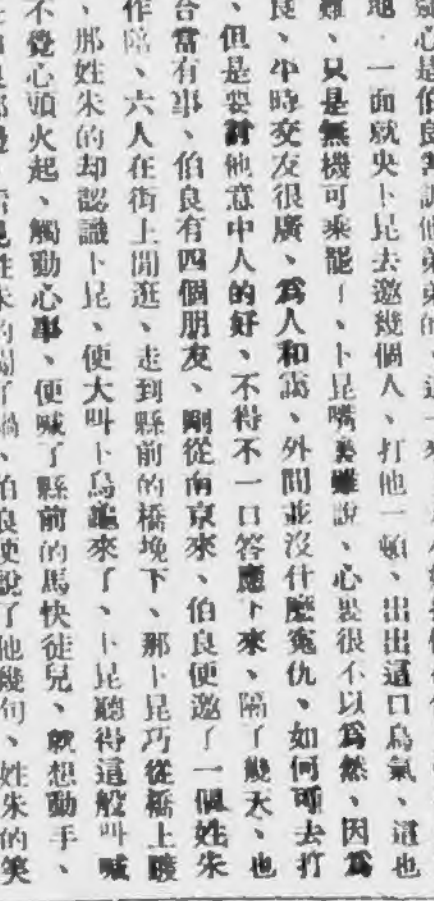 疑心是伯良害訓他弟弟的、這一來
地、一面就央卜昆去邀幾個人、打他一頓、出出這口烏氣、這也
難、只是無機可乘罷了、卜昆嘴裏雖說、心裏很不以爲然、因爲
良、少時交友很廣、爲人和藹、外間並沒什麼寃仇、如何可去打
、但是要討他意中人的好、不得不一口答應下來、隔了幾天、也
合當有事、伯良有四個朋友、剛從南京來、伯良便邀了一個姓朱
作陪、六人在街上閒逛、走到縣前的橋堍下、那卜昆巧從橋上踱
、那姓朱的却認識卜昆、便大叫卜烏龜來了、卜昆聽得這般叫喊
不覺心頭火起、觸動心事、便喊了縣前的馬快徒兒、就想動手、
姓朱的闖了禍、伯良便說了他幾句、姓朱的笑